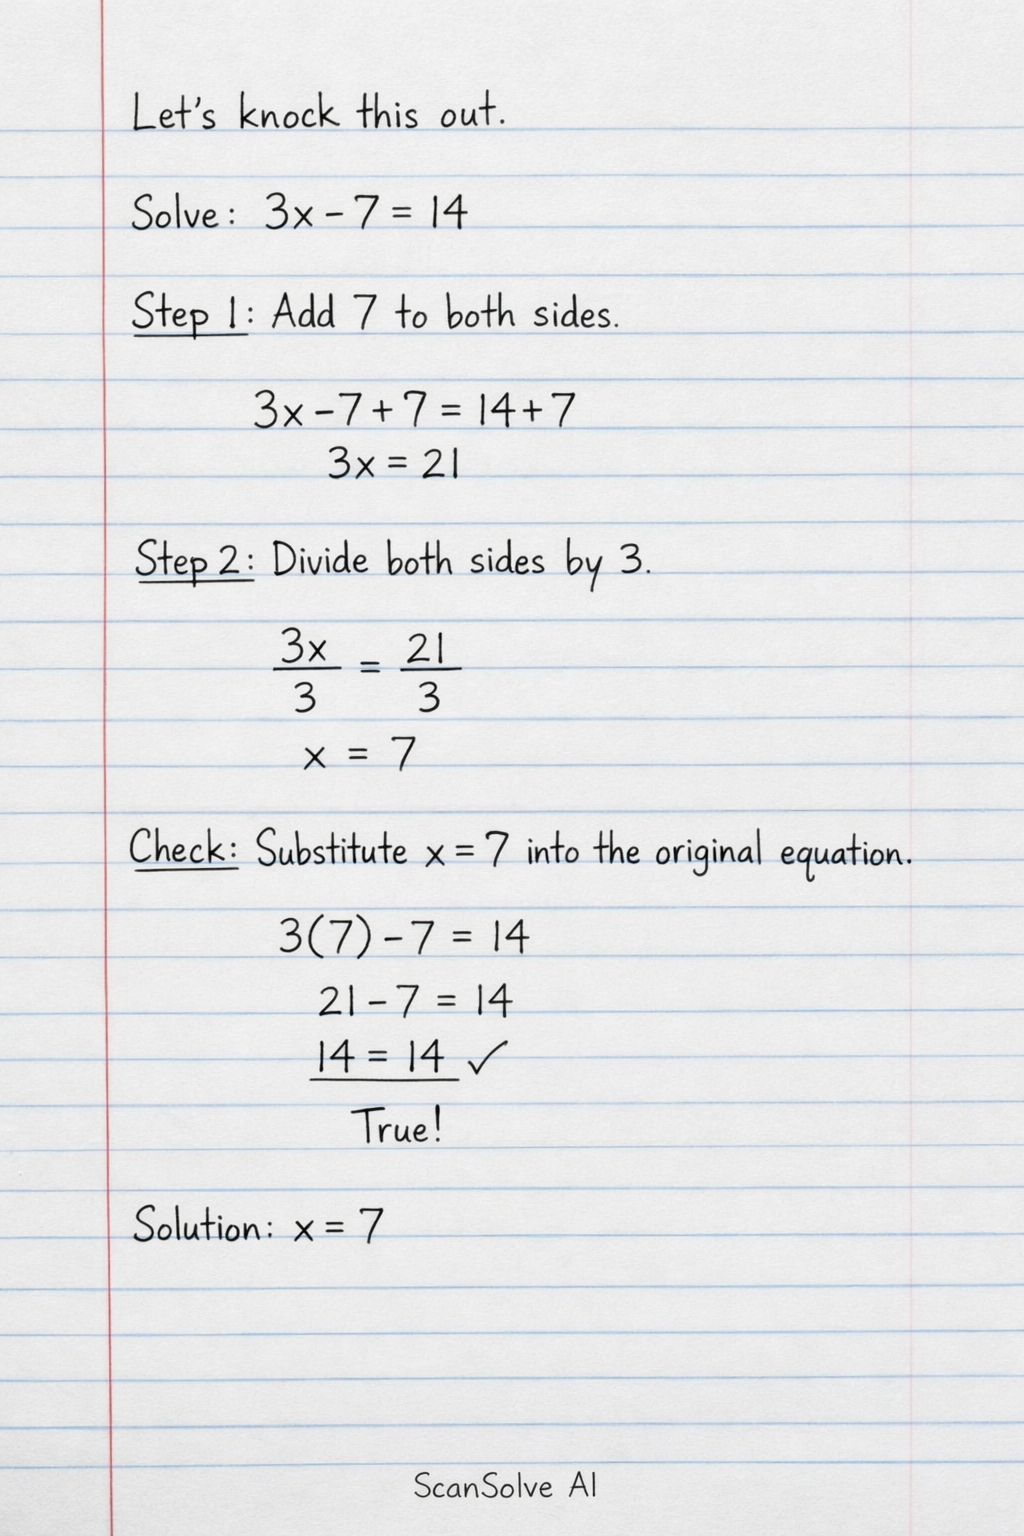 Let's knock this out.
Solve: 3x - 7 = 14
Step 1: Add 7 to both sides.
3x - 7 + 7 = 14 + 7
3x = 21
Step 2: Divide both sides by 3.
3x/3 = 21/3
x = 7
Check: Substitute x = 7 into the original equation.
3(7) - 7 = 14
21 - 7 = 14
14 = 14 ✓
True!
Solution: x = 7
ScanSolve AI